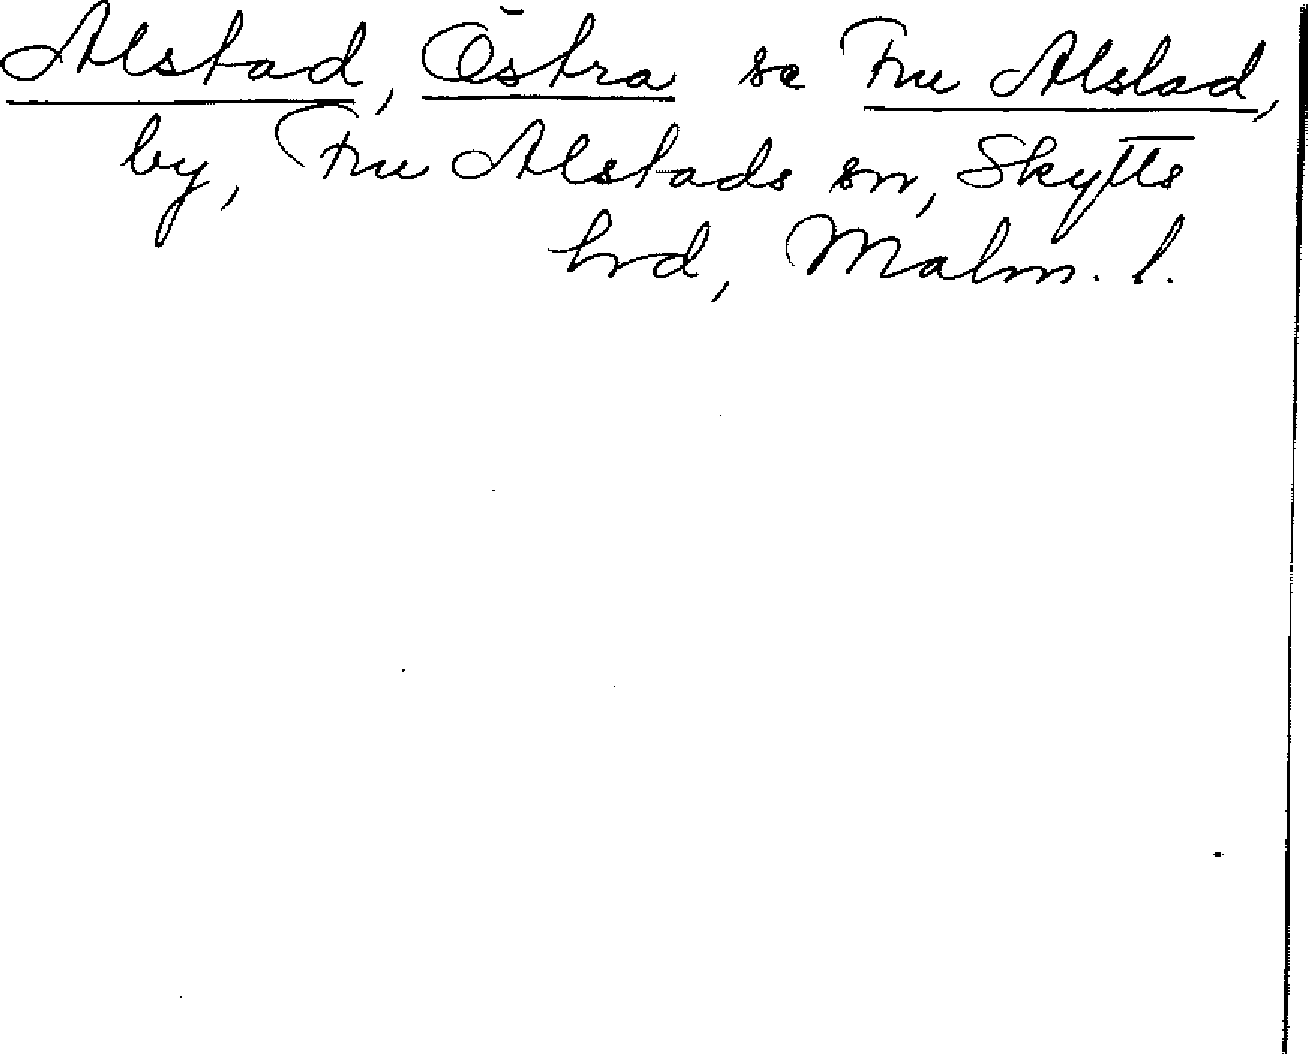 Alstad, Östra se Fru Alstad,
by, Fru Alstads sn, Skytts
hrd, Malm. l.